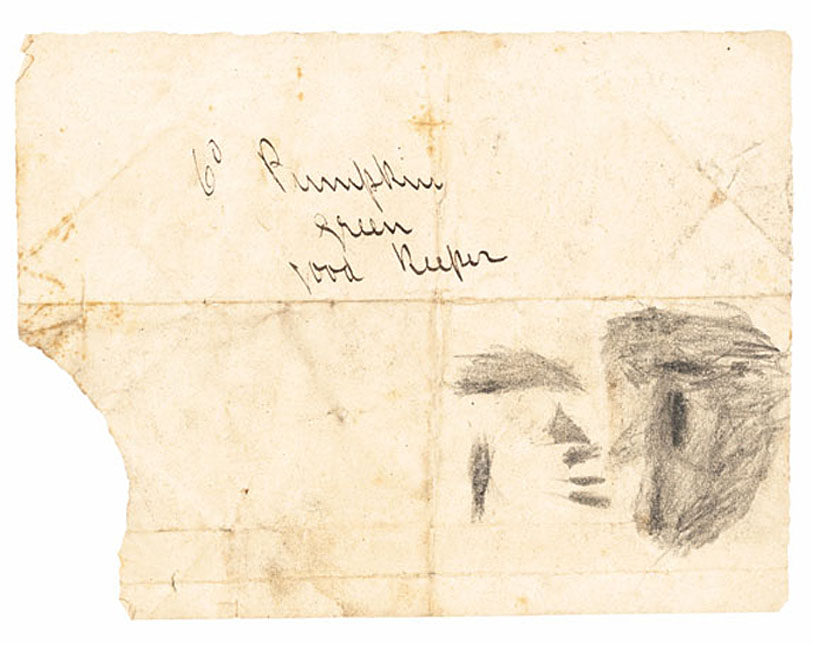 6⁰ Pumpkin
green
good Keeper